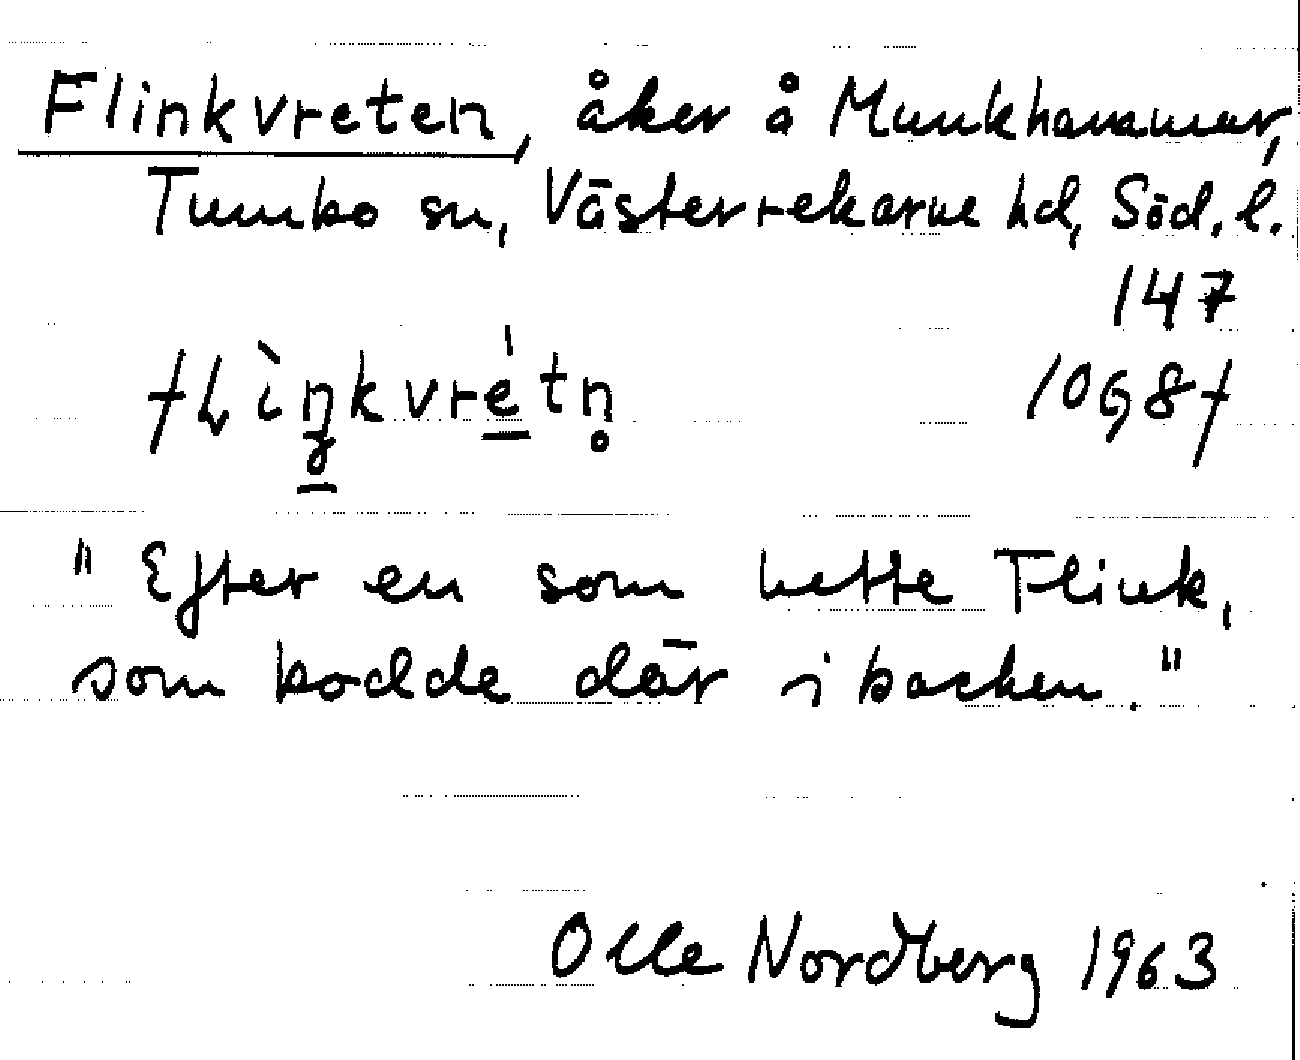 Flinkvreten, åker å Munkhammar,
Tumbo sn, Västerrekarne hd, Söd. l.
147
flìŋkvre̱̍tn̥ 10G8f
"Efter en som hette Flink,
som bodde där i backen."
Olle Nordberg 1963